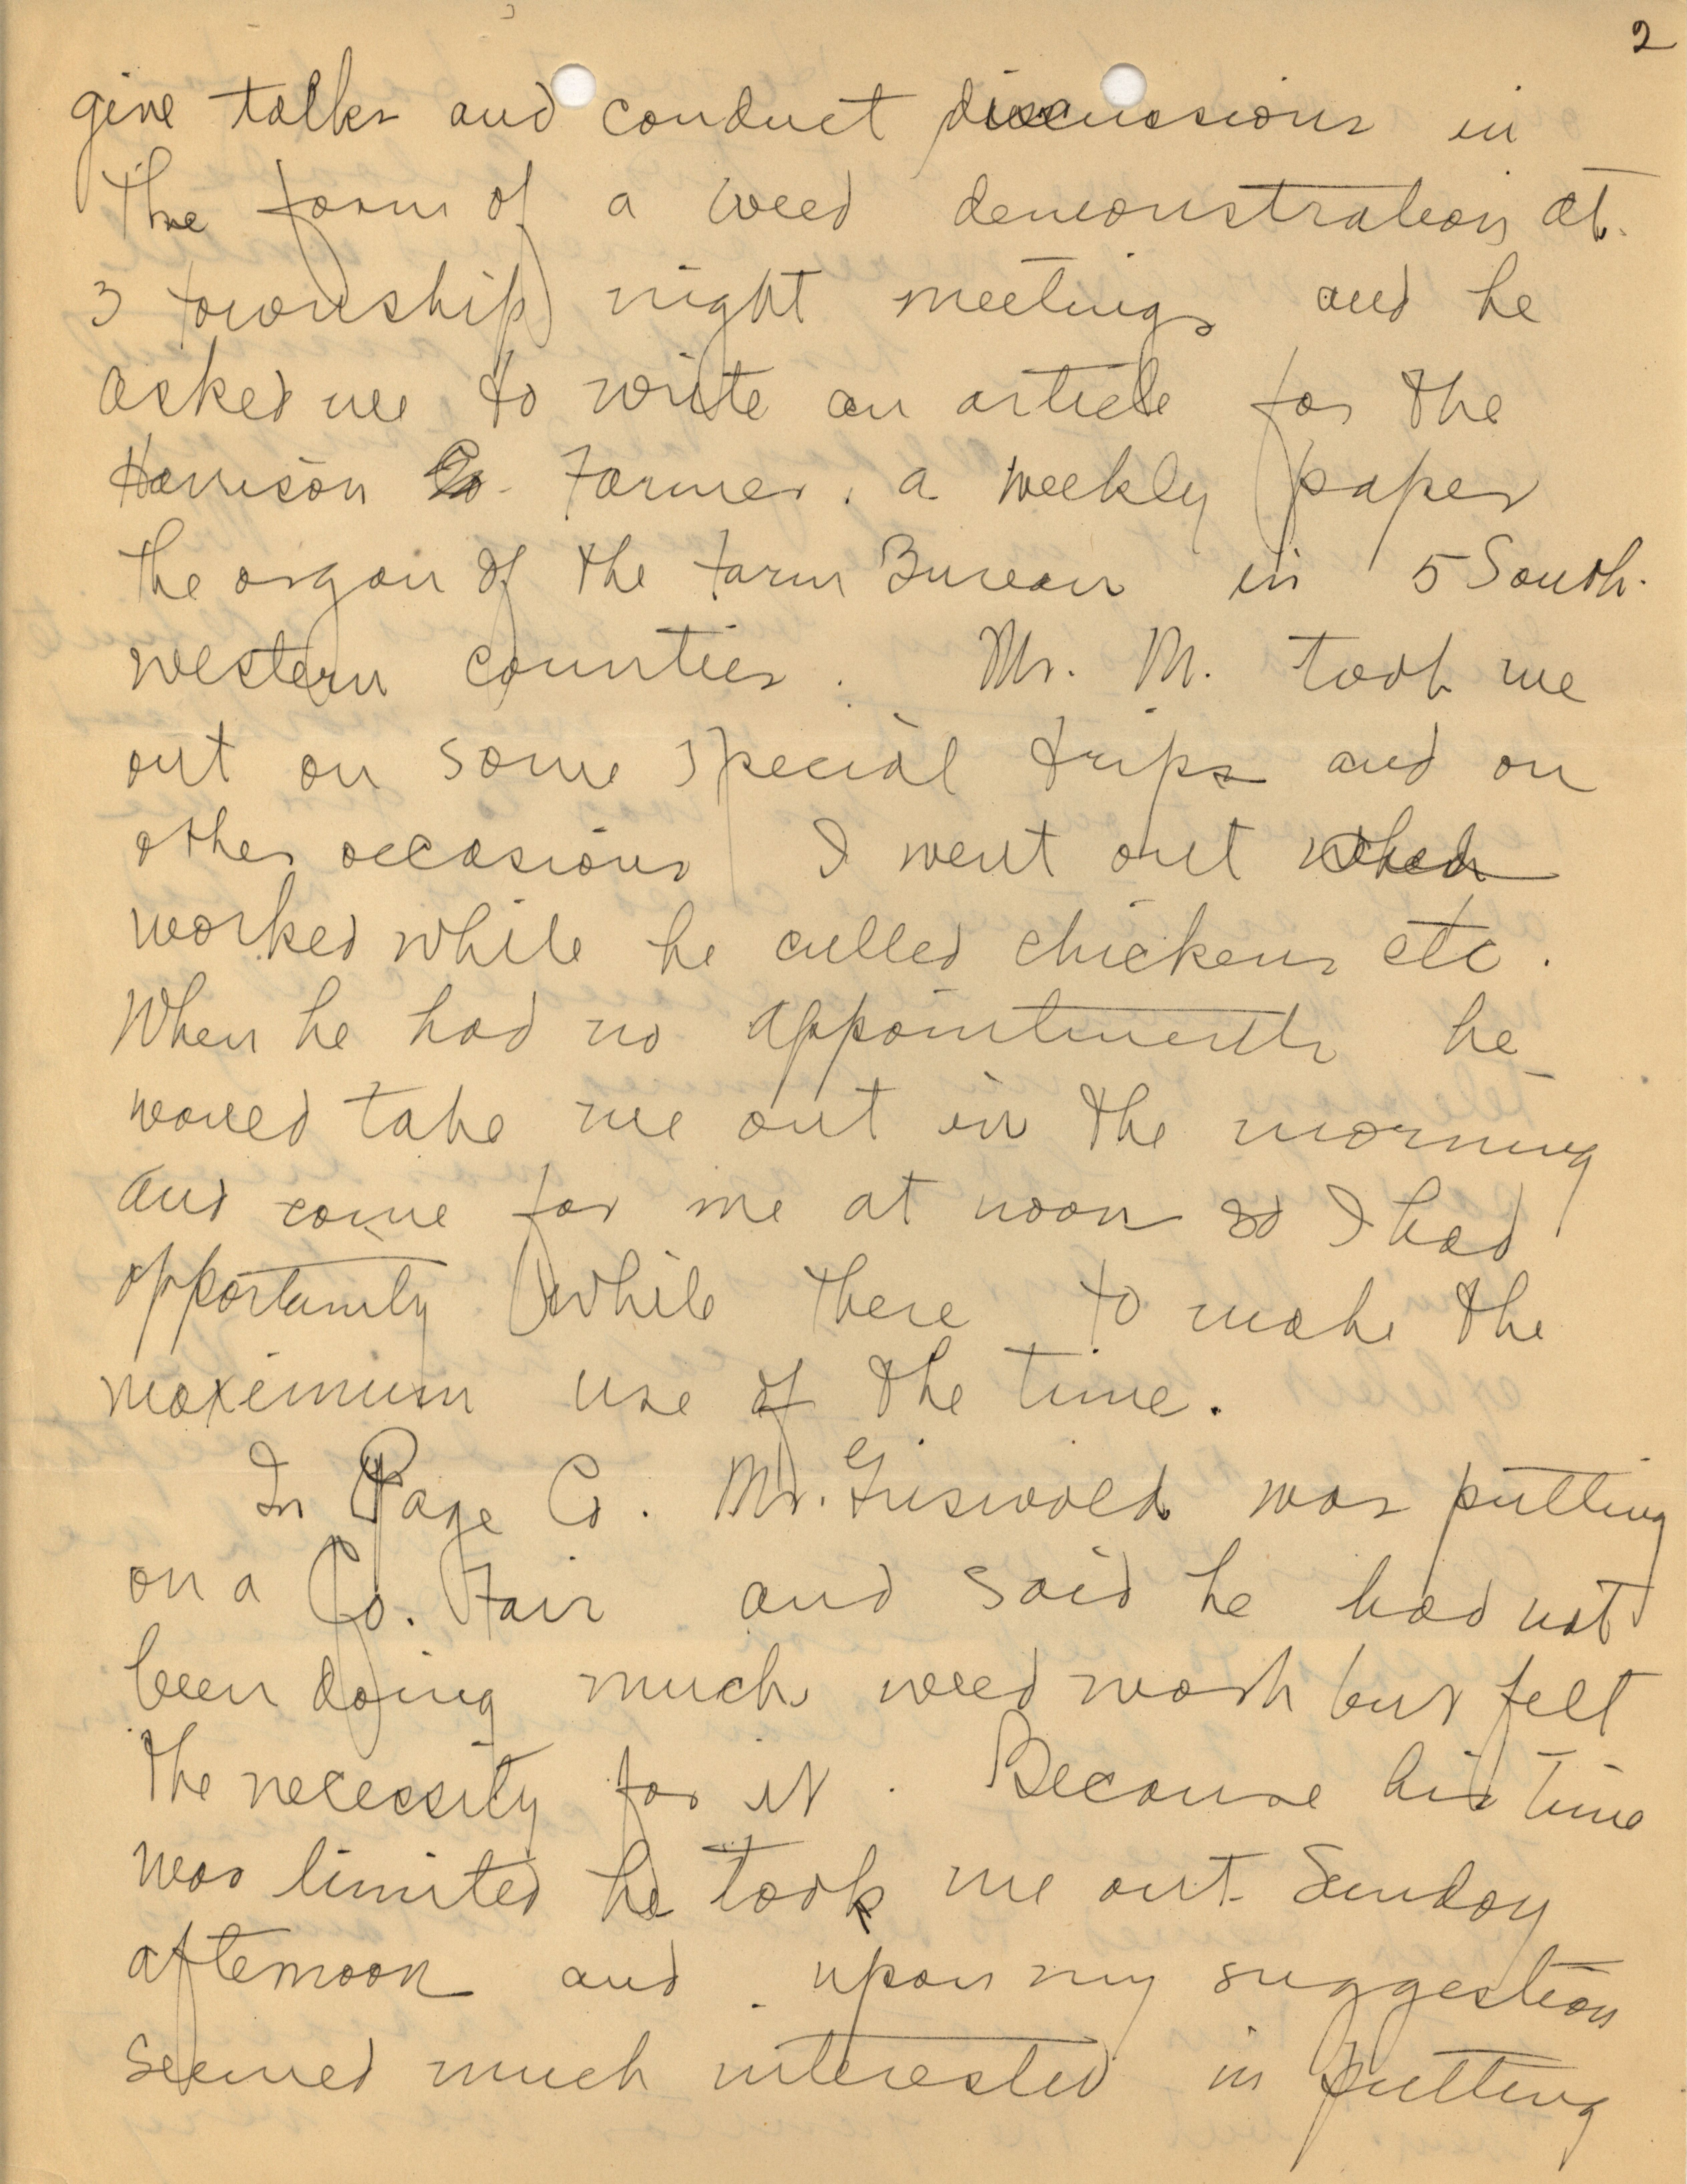 2
give talks and conduct discussions in
the form of a weed demonstration at
3 township night meetings and he
asked me to write an article for the
Harrison Co. Farmer, a weekly paper
the organ of the Farm Bureau in 5 South-
western counties. Mr. M. took me
out on some special trips and on
other occasions I went out and
worked while he culled chickens etc.
When he had no appointments he
would take me out in the morning
and come for me at noon so I had
opportunity while there to make the
maximum use of the time.
In Page Co. Mr. Griswold was putting
on a Co. Fair and said he had not
been doing much weed work but felt
the necessity for it. Because his time
was limited he took me out Sunday
afternoon and upon my suggestion
seemed much interested in putting